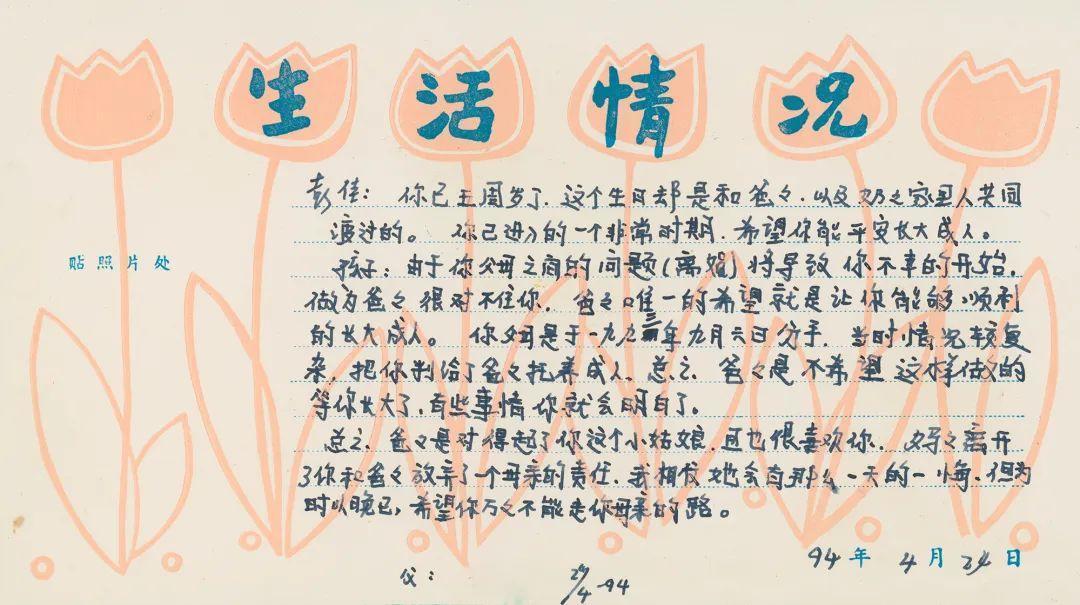 生活情况
彭佳：你已三周岁了，这个生日却是和爸々，以及奶々家里人共同
渡过的。你已进入的一个非常时期，希望你能平安长大成人。
贴照片处
孩子：由于你父母之间的问题（离婚）将导致你不幸的开始，
做为爸々很对不住你，爸々唯一的希望就是让你能够顺利
的长大成人。你妈是于一九九三年九月六日分手，当时情况较复
杂，把你判给了爸々抚养成人，总之，爸々是不希望这样做的
等你长大了，有些事情你就会明白了。
总之，爸々是对得起了你这个小姑娘，且也很喜欢你，妈々离开
了你和爸々放弃了一个母亲的责任，我相信她会有那么一天的一悔，但为
时以晚已，希望你万々不能走你母亲的路。
94年4月24日
父：
24/4-94